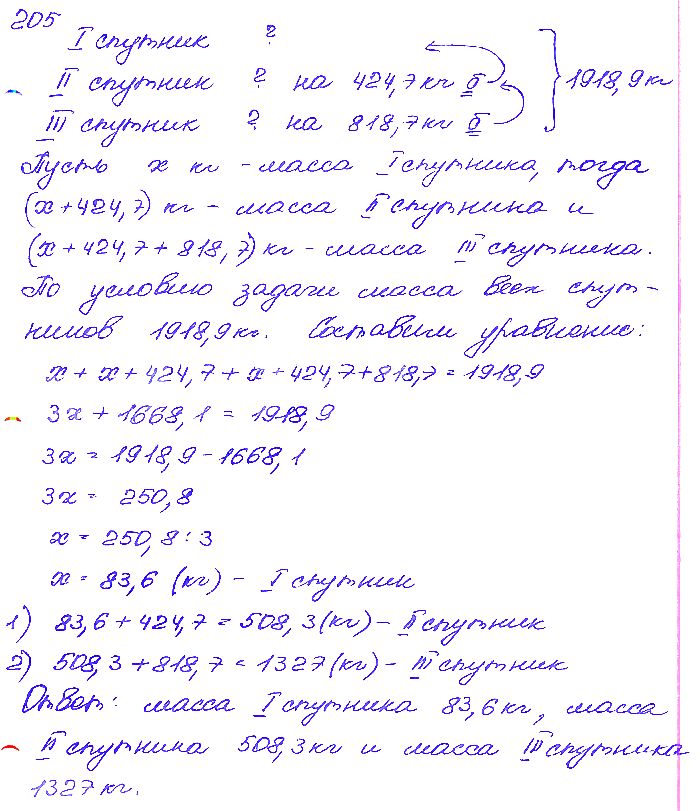 205
I спутник ?
II спутник ? на 424,7 кг б
1918,9 кг
III спутник ? на 818,7 кг б
Пусть х кг - масса I спутника, тогда
(х+424,7) кг - масса II спутника и
(х+424,7+818,7) кг - масса III спутника.
По условию задачи масса всех спут-
ников 1918,9 кг. Составим уравнение:
х + х + 424,7 + х + 424,7 + 818,7 = 1918,9
3х + 1668,1 = 1918,9
3х = 1918,9 - 1668,1
3х = 250,8
х = 250,8 : 3
х = 83,6 (кг) - I спутник
1) 83,6 + 424,7 = 508,3 (кг) - II спутник
2) 508,3 + 818,7 = 1327 (кг) - III спутник
Ответ: масса I спутника 83,6 кг, масса
II спутника 508,3 кг и масса III спутника
1327 кг.